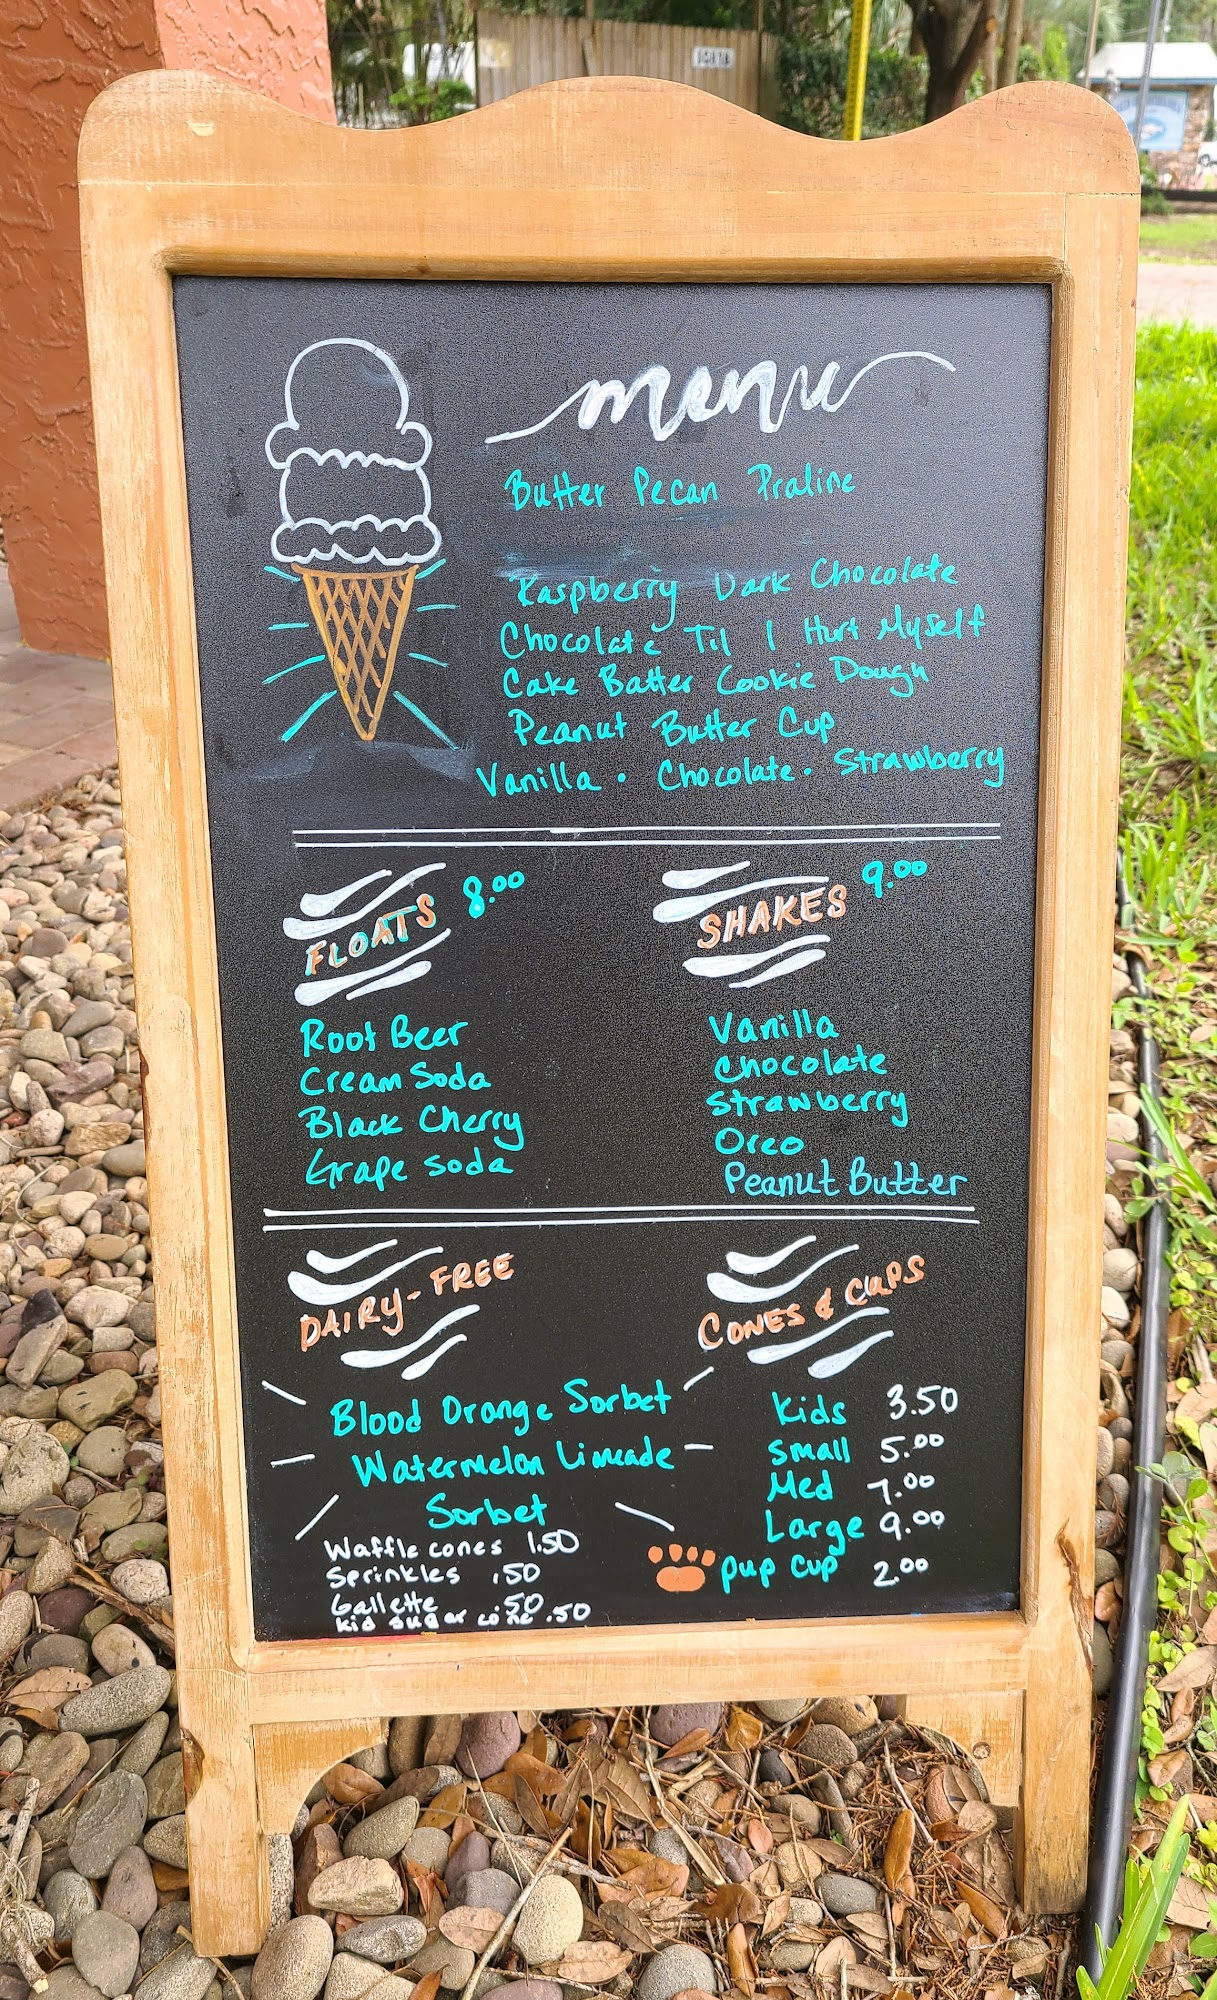 menu
Butter Pecan Praline
Raspberry Dark Chocolate
Chocolate Til I Hurt Myself
Cake Batter Cookie Dough
Peanut Butter Cup
Vanilla • Chocolate • Strawberry
FLOATS 8.00
Root Beer
Cream Soda
Black Cherry
Grape soda
SHAKES 9.00
Vanilla
Chocolate
Strawberry
Oreo
Peanut Butter
DAIRY-FREE
Blood Orange Sorbet
Watermelon Limeade
Sorbet
Waffle cones 1.50
Sprinkles .50
Gallette .50
kid sugar cone .50
CONES & CUPS
Kids 3.50
Small 5.00
Med 7.00
Large 9.00
pup cup 2.00